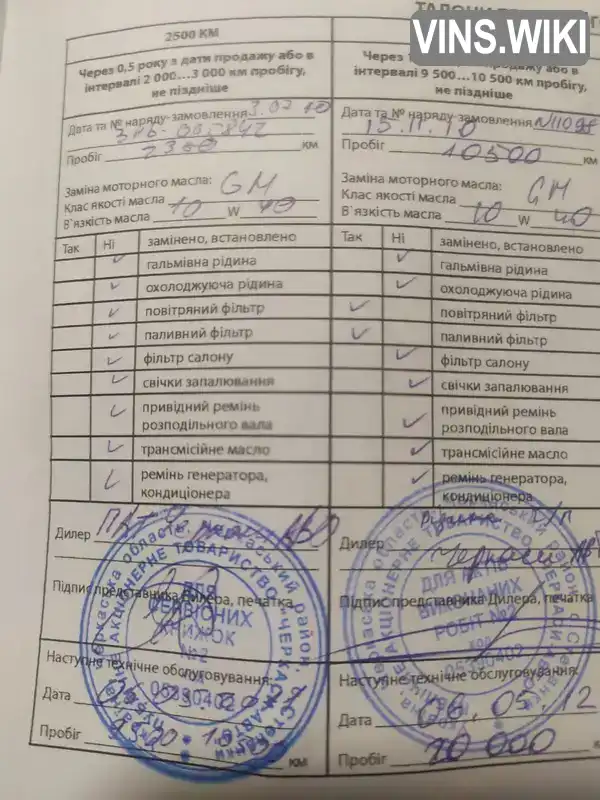 VINS.WIKI
2500 КМ
Через 0,5 року з дати продажу або в
інтервалі 2 000...3 000 км пробігу,
не пізніше
Дата та № наряду-замовлення 3.07.10
Пробіг 2300 км
Заміна моторного масла:
Клас якості масла GM
В'язкість масла 10 W 40
Так Ні замінено, встановлено
гальмівна рідина
охолоджуюча рідина
повітряний фільтр
паливний фільтр
фільтр салону
свічки запалювання
привідний ремінь
розподільного вала
трансмісійне масло
ремінь генератора,
кондиціонера
Дилер
Підпис представника Дилера, печатка
ДЛЯ
СЕРВІСНИХ
КНИЖОК
№2
05390402
Наступне технічне обслуговування:
Дата
Пробіг км
Через
продажу або в
інтервалі 9 500...10 500 км пробігу,
не пізніше
Дата та № наряду-замовлення
15.11.10
Пробіг 10500 км
Заміна моторного масла:
Клас якості масла GM
В'язкість масла 10 W 40
Так Ні замінено, встановлено
гальмівна рідина
охолоджуюча рідина
повітряний фільтр
паливний фільтр
фільтр салону
свічки запалювання
привідний ремінь
розподільного вала
трансмісійне масло
ремінь генератора,
кондиціонера
Дилер
Підпис представника Дилера, печатка
РОБІТ №2
05390402
Наступне технічне обслуговування:
Дата 06.05.12
Пробіг 20 000